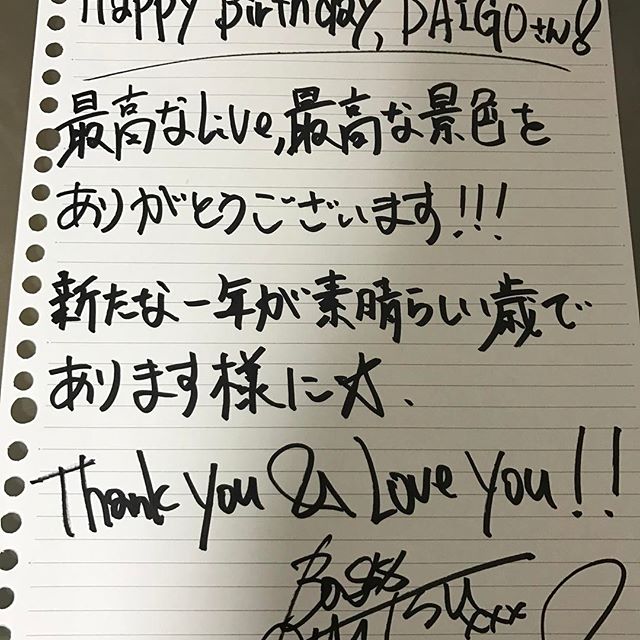 Happy Birthday, DAIGOさん!
最高なLive,最高な景色を
ありがとうございます!!!
新たな一年が素晴らしい歳で
あります様に☆.
Thank you & Love you!!
Bass